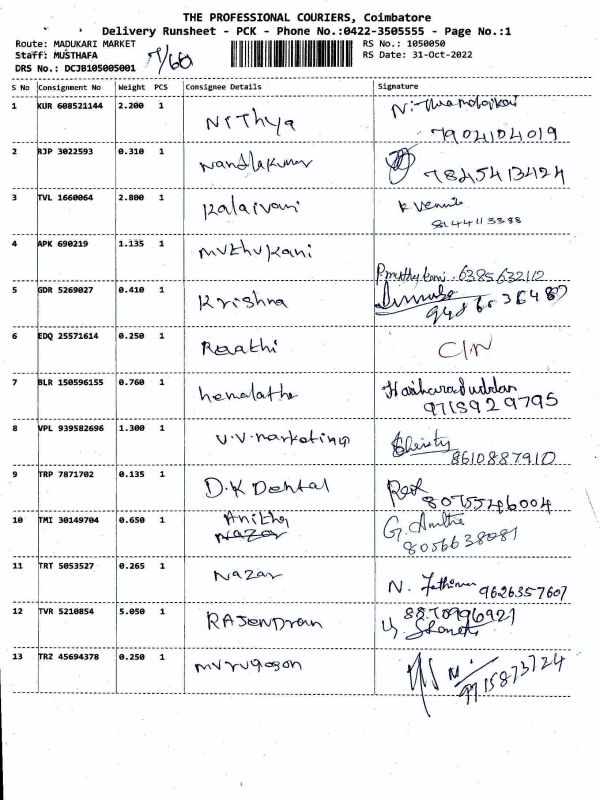 THE PROFESSIONAL COURIERS, Coimbatore
Delivery Runsheet - PCK - Phone No.:0422-3505555 - Page No.:1
Route: MADUKARI MARKET RS No.: 1050050
Staff: MUSTHAFA RS Date: 31-Oct-2022
DRS No.: DCJB105005001
S No Consignment No Weight PCS Consignee Details Signature
1 KUR 608521144 2.200 1 Nithya
7904104019
2 RJP 3022593 0.310 1 Nandhakumar
7845413424
3 TVL 1660064 2.800 1 Kalaivani
8144113388
4 APK 690219 1.135 1 muthukani
6385632112
5 GDR 5269027 0.410 1 Krishna
6 EDQ 25571614 0.250 1 Raathi
7 BLR 150596155 0.760 1 hemalatha
9715929795
8 VPL 939582696 1.300 1 V.V.marketing
8610887910
9 TRP 7871702 0.135 1 D.K Dental
10 TMI 30149704 0.650 1 Anitha G. Anitha
Nazar 8056638081
11 TRT 5053527 0.265 1 Nazar N. Fathima 9626357607
12 TVR 5210854 5.050 1 RAJENDran
13 TRZ 45694378 0.250 1 murugasan
9715873724